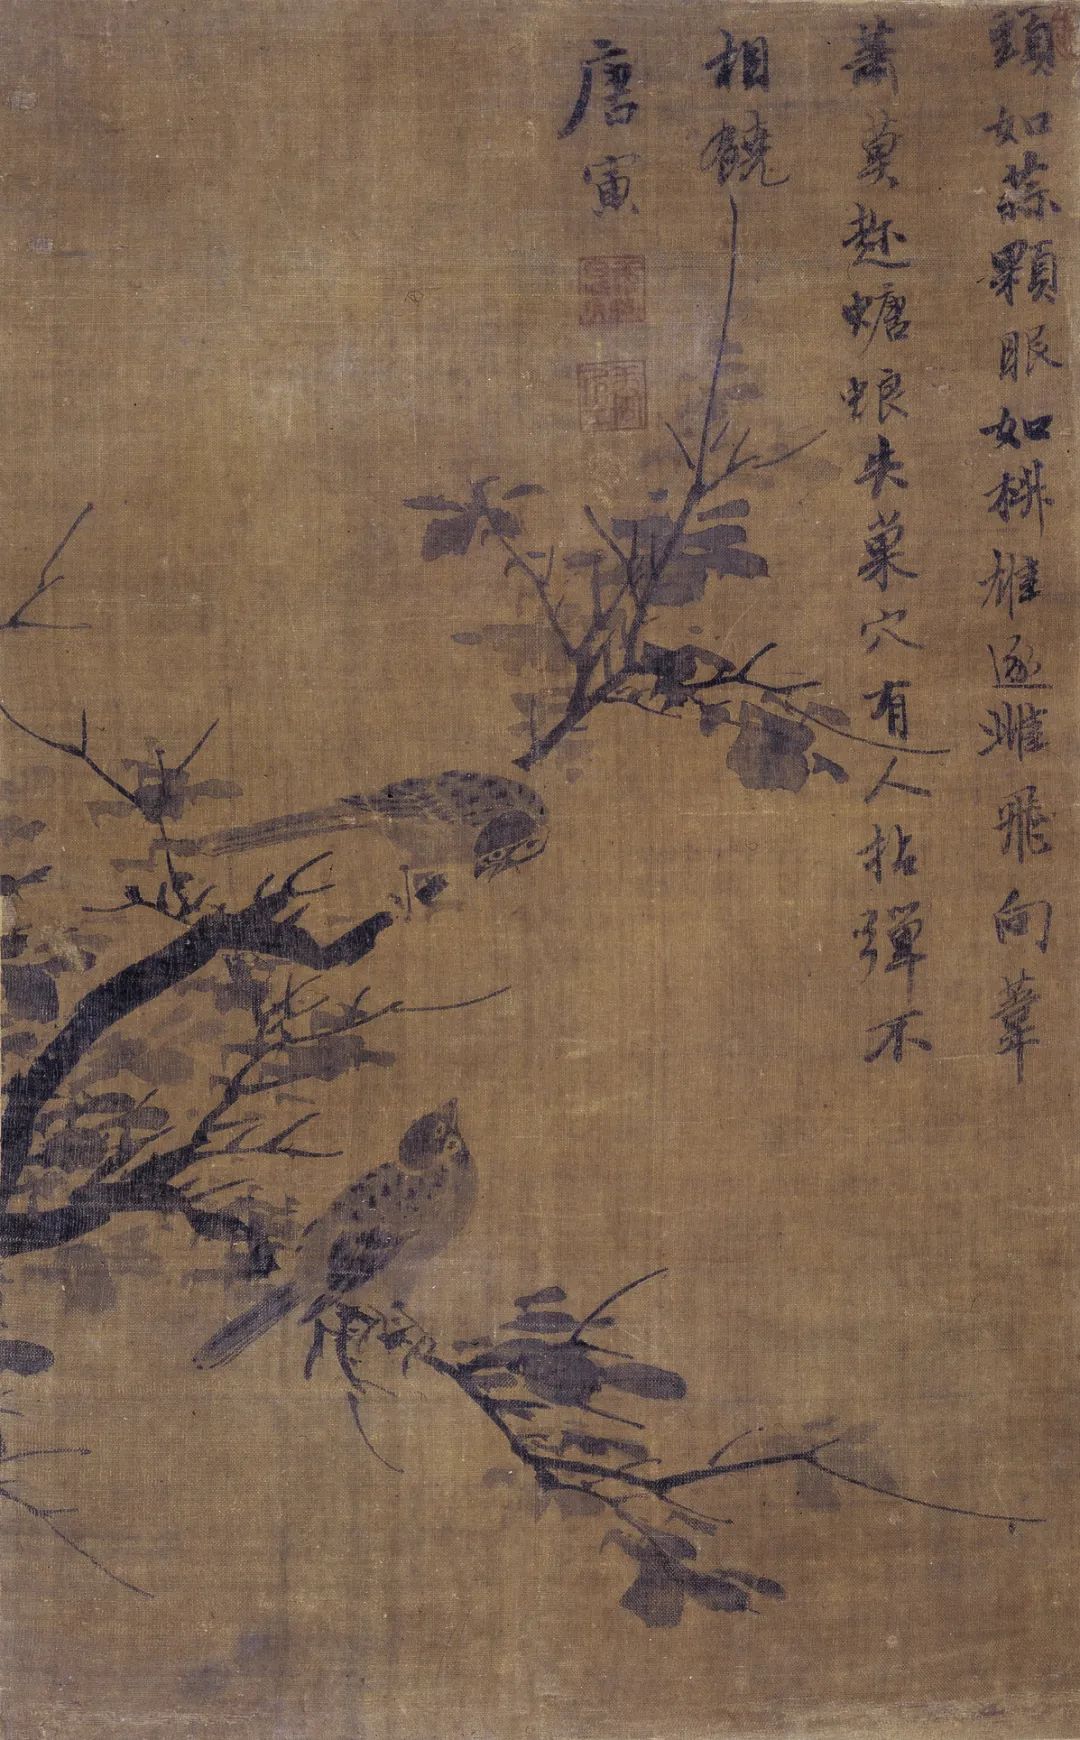 頭如蒜顆眼如椒雄逐雌飛向葦
蕭莫趁螗蜋失巢穴有人拈彈不
相饒
唐寅